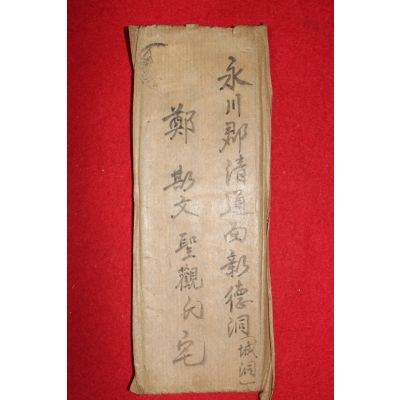 永川郡淸通面新德洞(城洞)
鄭 斯文 聖觀氏 宅